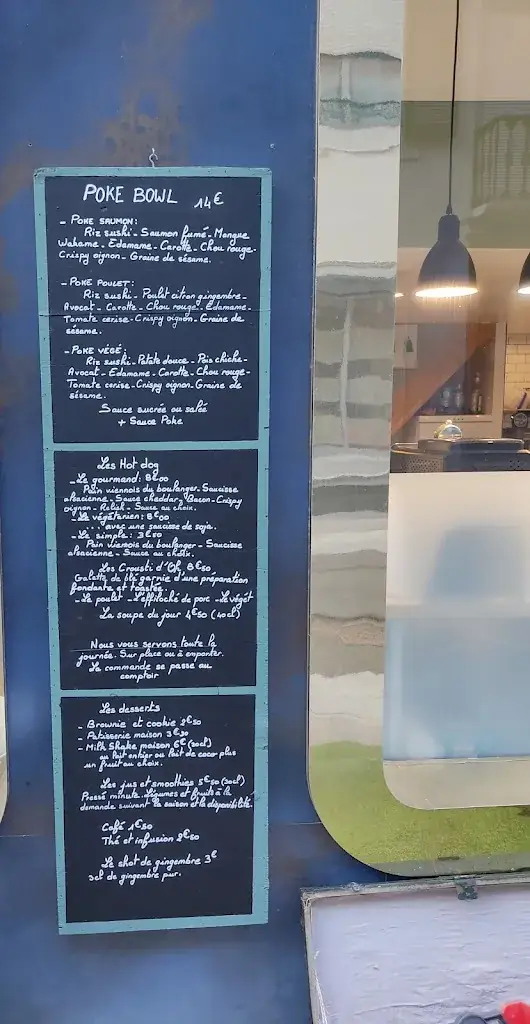 POKE BOWL 14€
- POKE SAUMON:
Riz sushi - Saumon fumé - Mangue
Wakame - Edamame - Carotte - Chou rouge -
Crispy oignon - Graine de sésame.
- POKE POULET:
Riz sushi - Poulet citron gingembre -
Avocat - Carotte - Chou rouge - Edamame -
Tomate cerise - Crispy oignon - Graine de
sésame.
- POKE VÉGÉ:
Riz sushi - Patate douce - Pois chiche -
Avocat - Edamame - Carotte - Chou rouge -
Tomate cerise - Crispy oignon - Graine de
sésame.
Sauce sucrée ou salée
+ Sauce Poke
Les Hot dog
- Le gourmand: 8€00
Pain viennois du boulanger - Saucisse
alsacienne - Sauce cheddar - Bacon - Crispy
oignon - Relish - Sauce au choix.
- Le végétarien: 8€00
... avec une saucisse de soja.
- Le simple: 3€50
Pain viennois du boulanger - Saucisse
alsacienne - Sauce au choix.
Les Crousti d'Oh 8€50
Galette de blé garnie d'une préparation
fondante et toastée.
- Le poulet - L'effiloché de porc - Le végét
La soupe du jour 4€50 (40cl)
Nous vous servons toute la
journée. Sur place ou à emporter.
La commande se passe au
comptoir
Les desserts
- Brownie et cookie 2€50
- Patisserie maison 3€30
- Milk Shake maison 6€ (30cl)
au lait entier ou lait de coco plus
un fruit au choix.
Les jus et smoothies 5€50 (30cl)
Pressé minute. Légumes et fruits à la
demande suivant la saison et la disponibilité.
Café 1€50
Thé et infusion 2€50
Le shot de gingembre 3€
3cl de gingembre pur.